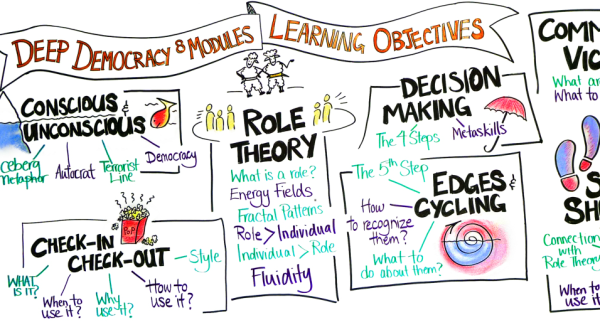 DEEP DEMOCRACY 8 MODULES
LEARNING OBJECTIVES
CONSCIOUS &
UNCONSCIOUS
Iceberg
Metaphor
Autocrat
Terrorist
Line
Democracy
CHECK-IN
CHECK-OUT
POP
Style
WHAT
IS IT?
When to
use it?
Why
use it?
How to
use it?
ROLE
THEORY
What is a role?
Energy Fields
Fractal Patterns
Role > Individual
Individual > Role
Fluidity
DECISION
MAKING
The 4 Steps
Metaskills
The 5th Step
EDGES &
CYCLING
How
to recognize
them?
What to
do about them?
COMM
VIC
What ar
What to
S
SH
Connection
with
Role Theory
When
use it?